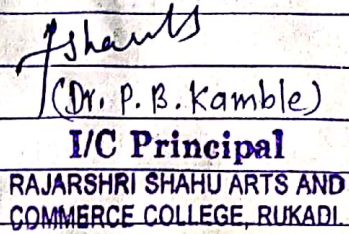 (Dr. P. B. Kamble)
I/C Principal
RAJARSHRI SHAHU ARTS AND
COMMERCE COLLEGE, RUKADI.